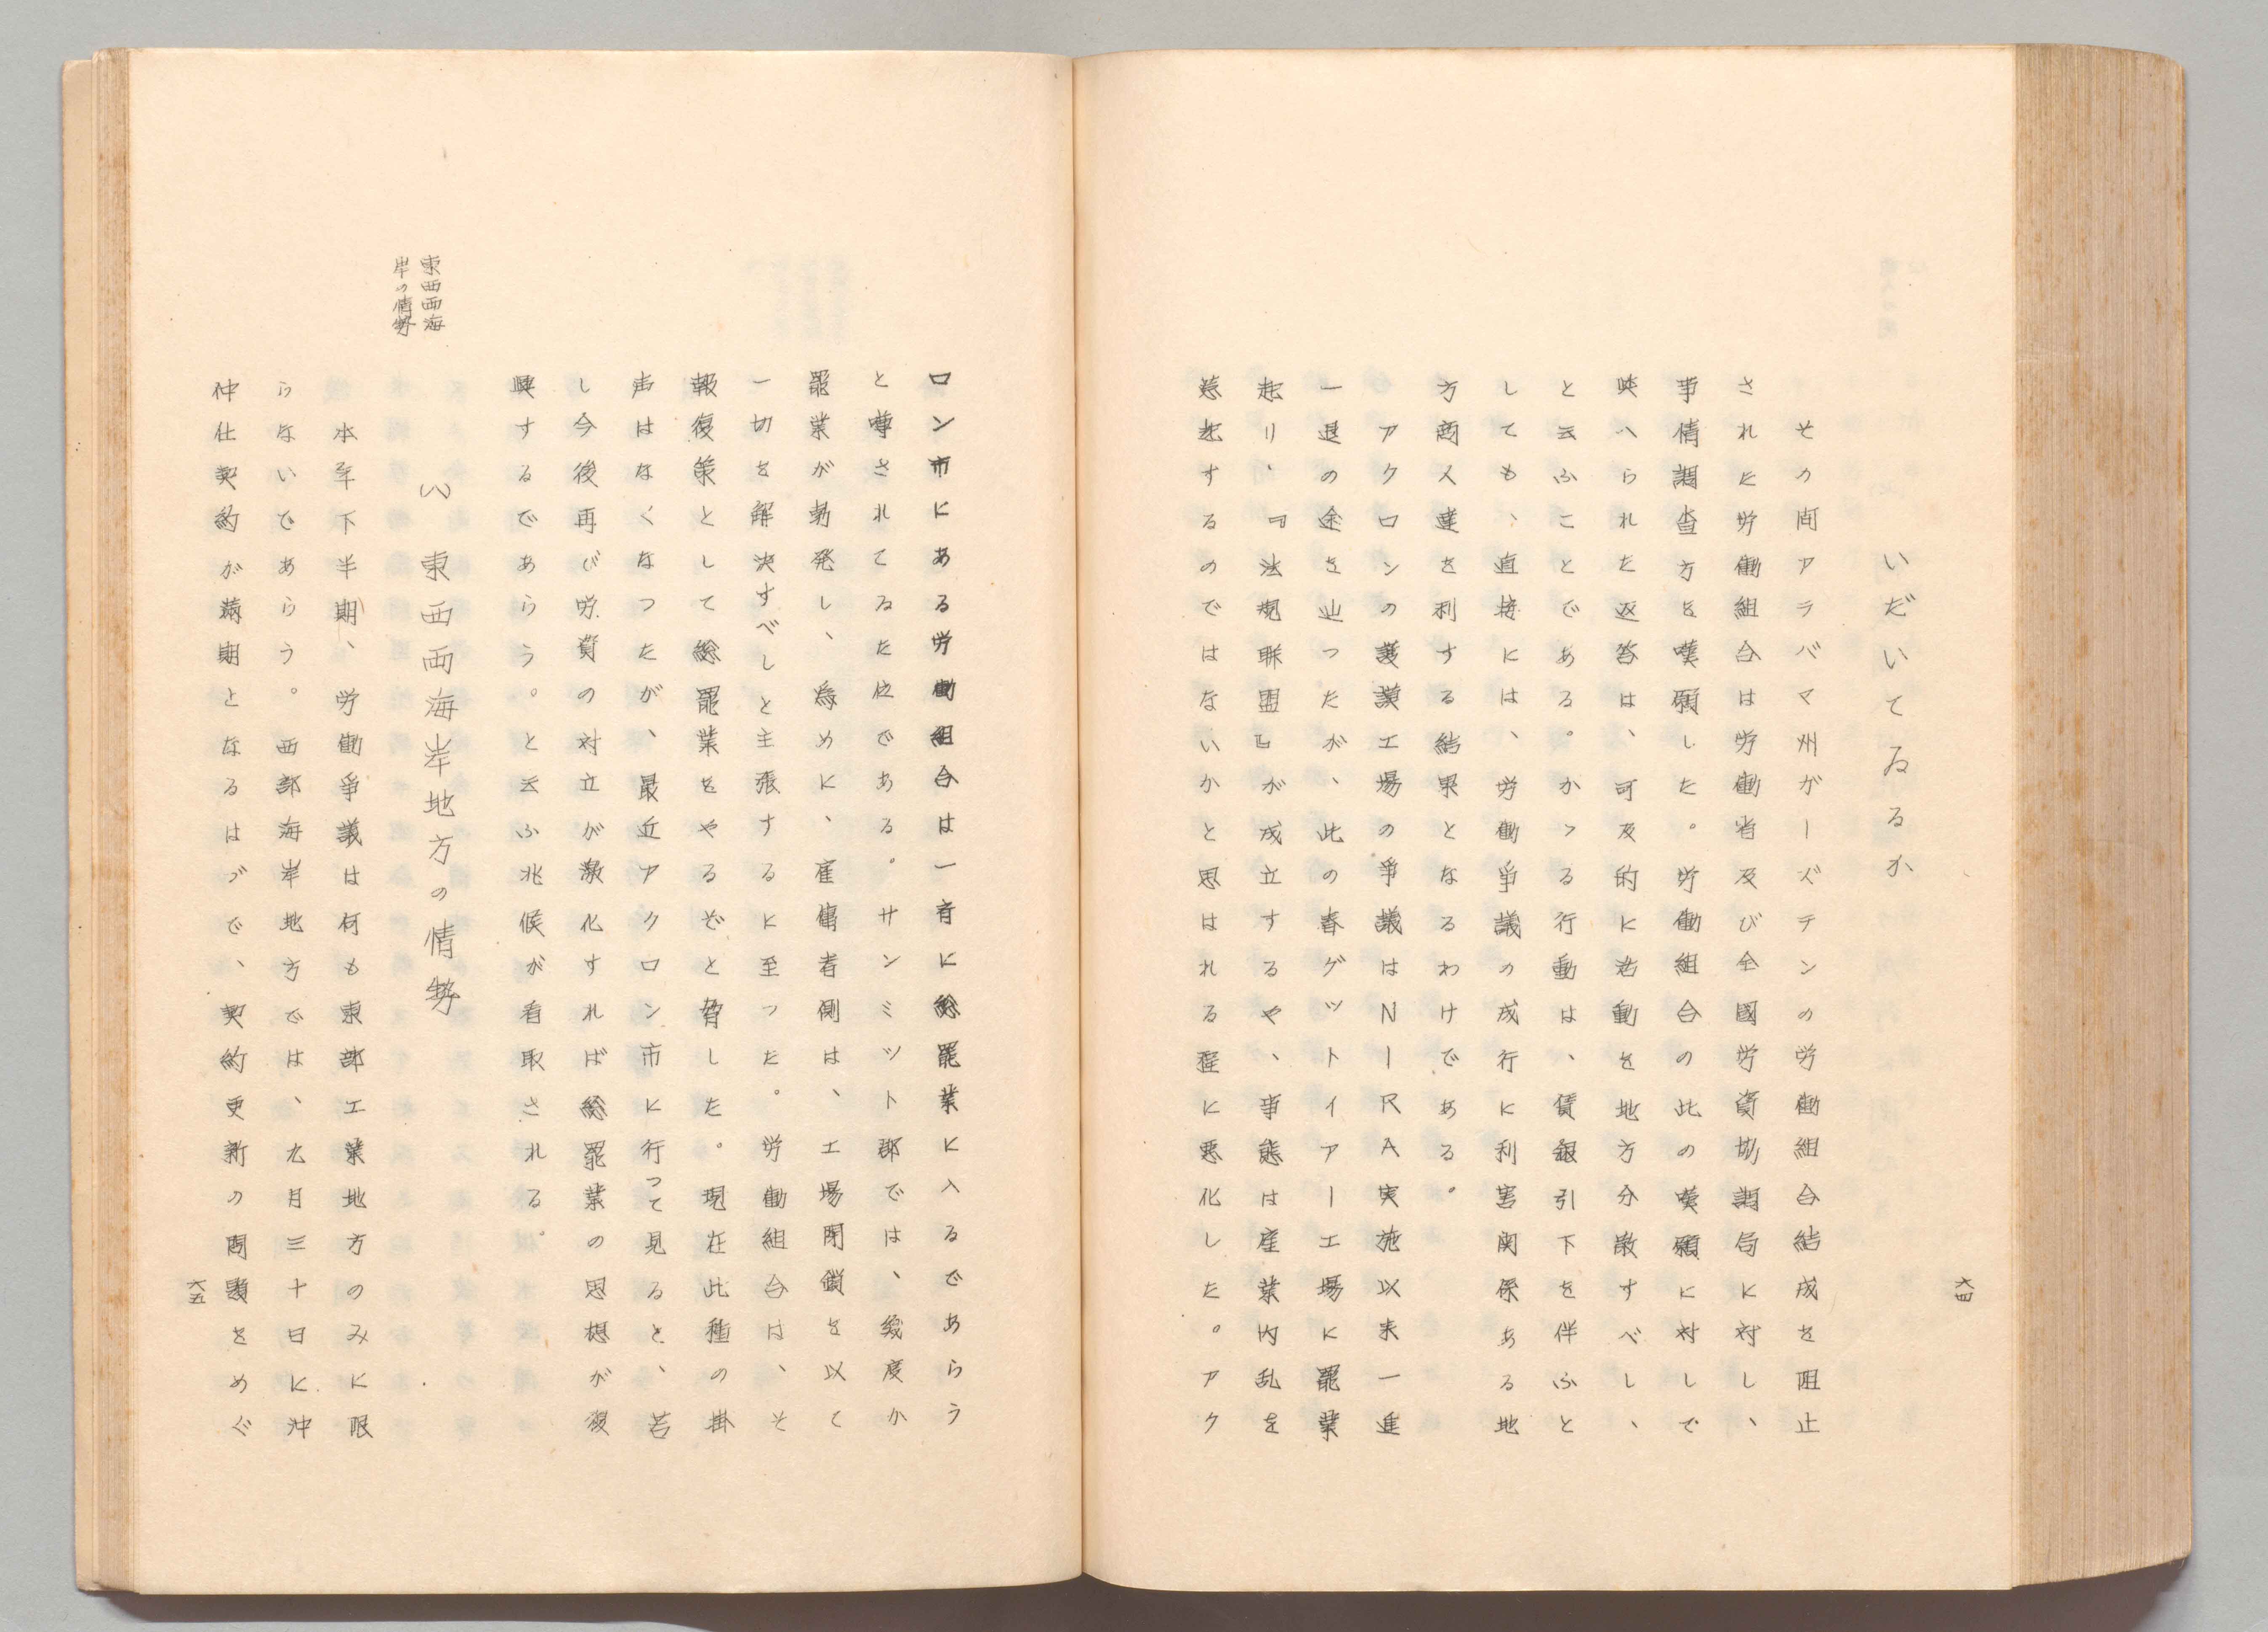 六四
いだいてゐるか
その間アラバマ州がーズデンの労働組合結成を阻止
されに労働組合は労働省及び全國労資協調局に対し、
事情調査方を嘆願した。労働組合の此の嘆願に対しで
映へられた返答は、可及的に右動を地方分散すべし、
と云ふことである。かゝる行動は、賃銀引下を伴ふと
しても、直接には、労働爭議の成行に利害関係ある地
方商人達を利する結果となるわけである。
アクロンの護謨工場の爭議はNーRA実施以来一進
一退の途を辿つたが、此の春グットイアー工場に罷業
起り、『法規聯盟』が成立するや、事態は産業内乱を
惹起するのではないかと思はれる程に悪化した。アク
ロン市にある労働組合は一斉に総罷業に入るであらう
と噂されてゐた位である。サンミット郡では、幾度か
罷業が勃発し、為めに、雇傭者側は、工場閉鎖を以て
一切を解決すべしと主張するに至つた。労働組合は、そ
報復策として総罷業をやるぞと脅した。現在此種の掛
声はなくなつたが、最近アクロン市に行つて見ると、若
し今後再び労資の対立が激化すれば総罷業の思想が復
興するであらう。と云ふ兆候が看取される。
東西両海
岸の情勢
(八) 東西両海岸地方の情勢
本年下半期、労働爭議は何も東部工業地方のみに限
らないであらう。西部海岸地方では、九月三十日に沖
仲仕契約が満期となるはづで、契約更新の問題をめぐ
六五